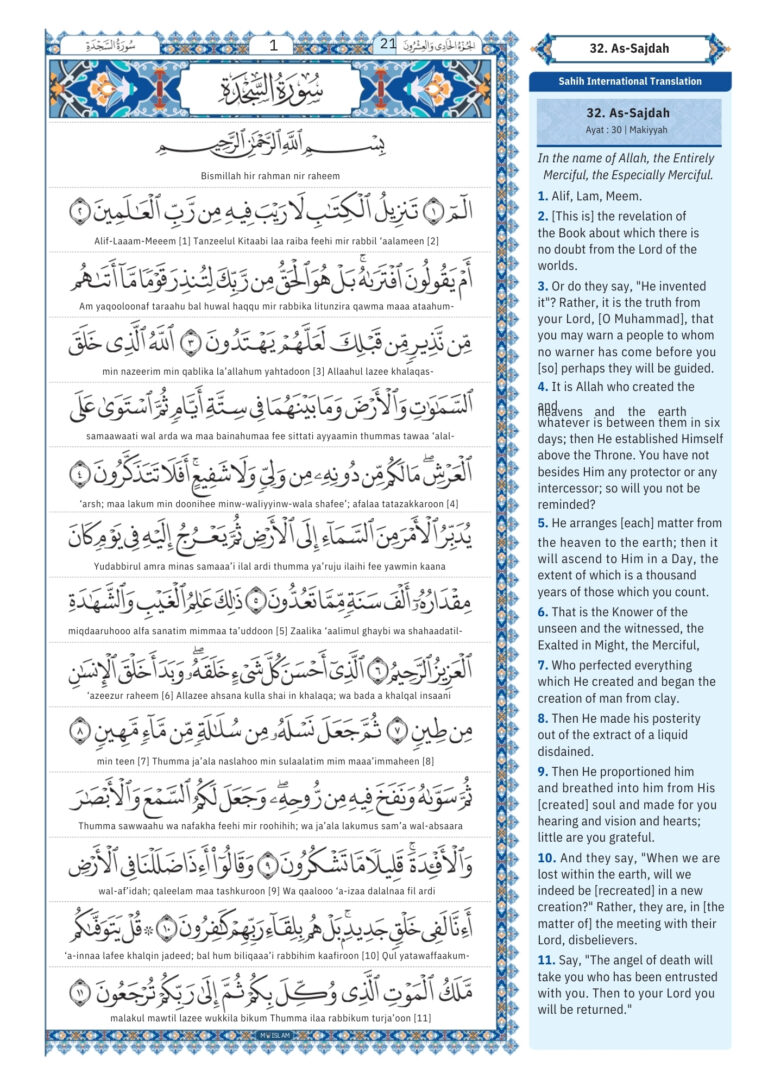 سُورَةُ السَّجْدَةِ
1
21
الجُزْءُ الحَادِي وَالعِشْرُونَ
سُورَةُ السَّجْدَةِ
بِسْمِ ٱللَّهِ ٱلرَّحْمَٰنِ ٱلرَّحِيمِ
Bismillah hir rahman nir raheem
الٓمٓ ١ تَنزِيلُ ٱلْكِتَٰبِ لَا رَيْبَ فِيهِ مِن رَّبِّ ٱلْعَٰلَمِينَ ٢
Alif-Laaam-Meeem [1] Tanzeelul Kitaabi laa raiba feehi mir rabbil ‘aalameen [2]
أَمْ يَقُولُونَ ٱفْتَرَىٰهُ ۚ بَلْ هُوَ ٱلْحَقُّ مِن رَّبِّكَ لِتُنذِرَ قَوْمًا مَّآ أَتَىٰهُم
Am yaqooloonaf taraahu bal huwal haqqu mir rabbika litunzira qawma maaa ataahum-
مِّن نَّذِيرٍ مِّن قَبْلِكَ لَعَلَّهُمْ يَهْتَدُونَ ٣ ٱللَّهُ ٱلَّذِى خَلَقَ
min nazeerim min qablika la’allahum yahtadoon [3] Allaahul lazee khalaqas-
ٱلسَّمَٰوَٰتِ وَٱلْأَرْضَ وَمَا بَيْنَهُمَا فِى سِتَّةِ أَيَّامٍ ثُمَّ ٱسْتَوَىٰ عَلَى
samaawaati wal arda wa maa bainahumaa fee sittati ayyaamin thummas tawaa ‘alal-
ٱلْعَرْشِ ۖ مَا لَكُم مِّن دُونِهِۦ مِن وَلِىٍّ وَلَا شَفِيعٍ ۚ أَفَلَا تَتَذَكَّرُونَ ٤
‘arsh; maa lakum min doonihee minw-waliyyinw-wala shafee’; afalaa tatazakkaroon [4]
يُدَبِّرُ ٱلْأَمْرَ مِنَ ٱلسَّمَآءِ إِلَى ٱلْأَرْضِ ثُمَّ يَعْرُجُ إِلَيْهِ فِى يَوْمٍ كَانَ
Yudabbirul amra minas samaaa’i ilal ardi thumma ya’ruju ilaihi fee yawmin kaana
مِقْدَارُهُۥٓ أَلْفَ سَنَةٍ مِّمَّا تَعُدُّونَ ٥ ذَٰلِكَ عَٰلِمُ ٱلْغَيْبِ وَٱلشَّهَٰدَةِ
miqdaaruhooo alfa sanatim mimmaa ta’uddoon [5] Zaalika ‘aalimul ghaybi wa shahaadatil-
ٱلْعَزِيزُ ٱلرَّحِيمُ ٦ ٱلَّذِىٓ أَحْسَنَ كُلَّ شَىْءٍ خَلَقَهُۥ ۖ وَبَدَأَ خَلْقَ ٱلْإِنسَٰنِ
‘azeezur raheem [6] Allazee ahsana kulla shai in khalaqa; wa bada a khalqal insaani
مِن طِينٍ ٧ ثُمَّ جَعَلَ نَسْلَهُۥ مِن سُلَٰلَةٍ مِّن مَّآءٍ مَّهِينٍ ٨
min teen [7] Thumma ja’ala naslahoo min sulaalatim mim maaa’immaheen [8]
ثُمَّ سَوَّىٰهُ وَنَفَخَ فِيهِ مِن رُّوحِهِۦ ۖ وَجَعَلَ لَكُمُ ٱلسَّمْعَ وَٱلْأَبْصَٰرَ
Thumma sawwaahu wa nafakha feehi mir roohihih; wa ja’ala lakumus sam’a wal-absaara
وَٱلْأَفْـِٔدَةَ ۚ قَلِيلًا مَّا تَشْكُرُونَ ٩ وَقَالُوٓا۟ أَءِذَا ضَلَلْنَا فِى ٱلْأَرْضِ
wal-af’idah; qaleelam maa tashkuroon [9] Wa qaalooo ‘a-izaa dalalnaa fil ardi
أَءِنَّا لَفِى خَلْقٍ جَدِيدٍۭ ۚ بَلْ هُم بِلِقَآءِ رَبِّهِمْ كَٰفِرُونَ ١٠ ۞ قُلْ يَتَوَفَّىٰكُم
‘a-innaa lafee khalqin jadeed; bal hum biliqaaa’i rabbihim kaafiroon [10] Qul yatawaffaakum-
مَّلَكُ ٱلْمَوْتِ ٱلَّذِى وُكِّلَ بِكُمْ ثُمَّ إِلَىٰ رَبِّكُمْ تُرْجَعُونَ ١١
malakul mawtil lazee wukkila bikum Thumma ilaa rabbikum turja’oon [11]
32. As-Sajdah
Sahih International Translation
32. As-Sajdah
Ayat : 30 | Makiyyah
In the name of Allah, the Entirely
Merciful, the Especially Merciful.
1. Alif, Lam, Meem.
2. [This is] the revelation of
the Book about which there is
no doubt from the Lord of the
worlds.
3. Or do they say, "He invented
it"? Rather, it is the truth from
your Lord, [O Muhammad], that
you may warn a people to whom
no warner has come before you
[so] perhaps they will be guided.
4. It is Allah who created the
and
heavens and the earth
whatever is between them in six
days; then He established Himself
above the Throne. You have not
besides Him any protector or any
intercessor; so will you not be
reminded?
5. He arranges [each] matter from
the heaven to the earth; then it
will ascend to Him in a Day, the
extent of which is a thousand
years of those which you count.
6. That is the Knower of the
unseen and the witnessed, the
Exalted in Might, the Merciful,
7. Who perfected everything
which He created and began the
creation of man from clay.
8. Then He made his posterity
out of the extract of a liquid
disdained.
9. Then He proportioned him
and breathed into him from His
[created] soul and made for you
hearing and vision and hearts;
little are you grateful.
10. And they say, "When we are
lost within the earth, will we
indeed be [recreated] in a new
creation?" Rather, they are, in [the
matter of] the meeting with their
Lord, disbelievers.
11. Say, "The angel of death will
take you who has been entrusted
with you. Then to your Lord you
will be returned."